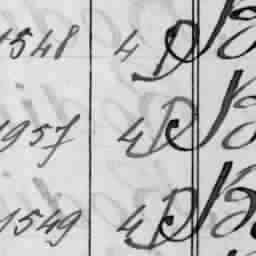 1548 4 D
1957 4 D
1549 4 D